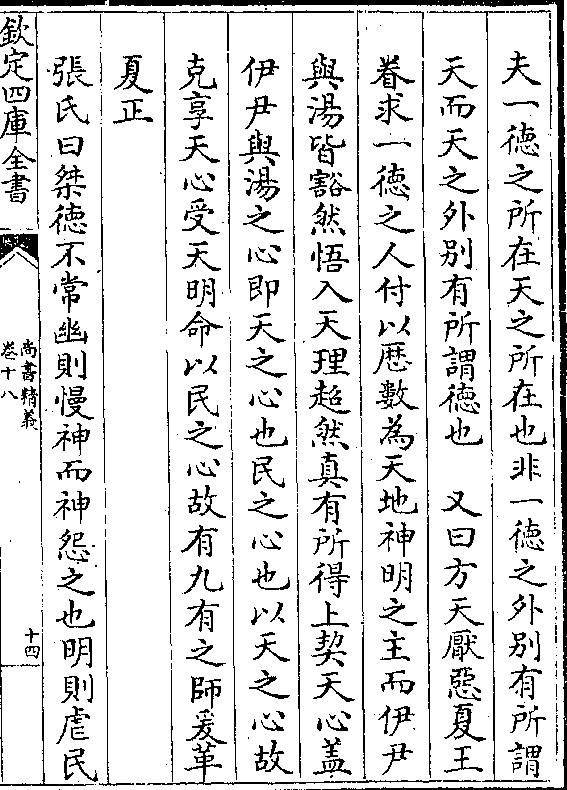 夫一徳之所在天之所在也非一徳之外别有所謂
天而天之外别有所謂徳也　又曰方天厭惡夏王
眷求一徳之人付以厯數為天地神明之主而伊尹
與湯皆豁然悟入天理超然真有所得上契天心盖
伊尹與湯之心即天之心也民之心也以天之心故
克享天心受天明命以民之心故有九有之師爰革
夏正
張氏曰桀徳不常幽則慢神而神怨之也明則虐民
欽定四庫全書
尚書精義
卷十八
十四